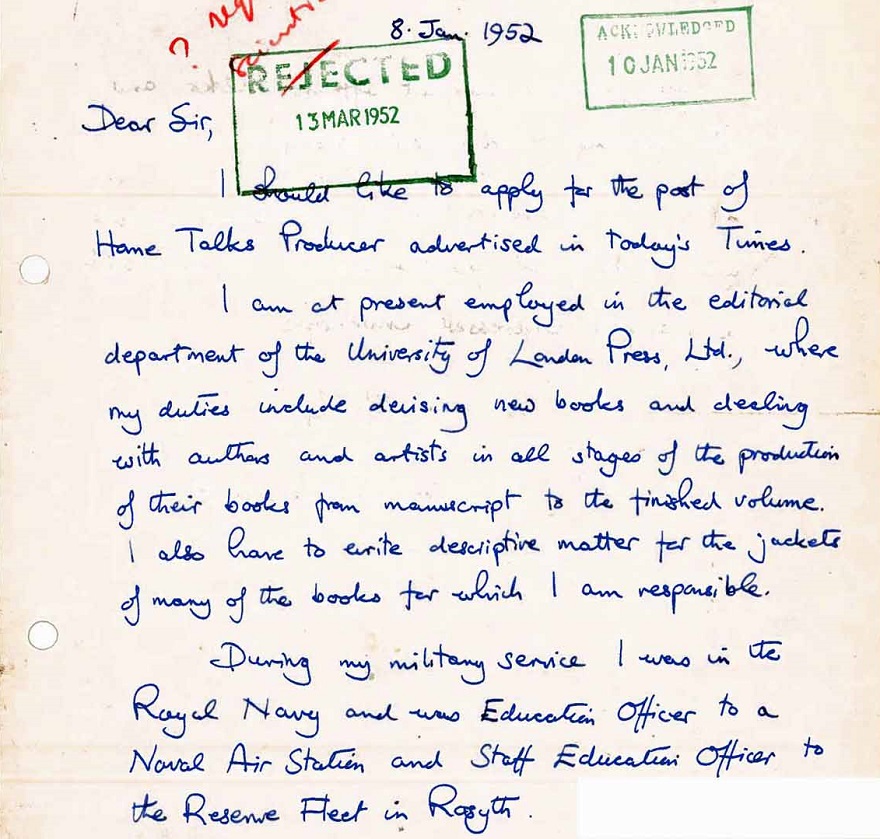 ? reg
scienti
8. Jan. 1952
ACKNOWLEDGED
10 JAN 1952
REJECTED
13 MAR 1952
Dear Sir,
I should like to apply for the post of
Home Talks Producer advertised in today's Times.
I am at present employed in the editorial
department of the University of London Press, Ltd., where
my duties include devising new books and dealing
with authors and artists in all stages of the production
of their books from manuscript to the finished volume.
I also have to write descriptive matter for the jackets
of many of the books for which I am responsible.
During my military service I was in the
Royal Navy and was Education Officer to a
Naval Air Station and Staff Education Officer to
the Reserve Fleet in Rosyth.